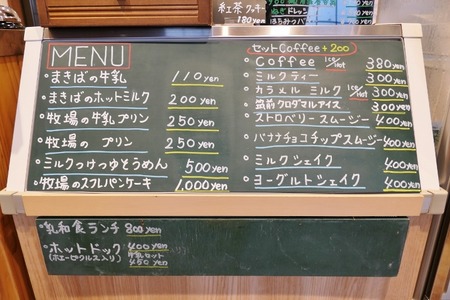 紅茶クッキー
180yen
MENU
・まきばの牛乳 110yen
・まきばのホットミルク 200yen
・牧場の牛乳プリン 250yen
・牧場の プリン 250yen
・ミルクつけつゆそうめん 500yen
・牧場のスフレパンケーキ 1,000yen
セットCoffee+200
・Coffee Ice/Hot 380yen
・ミルクティー 300yen
・カラメル ミルク Ice/Hot 300yen
・筑前クロダマルアイス 300yen
・ストロベリースムージー 400yen
・バナナチョコチップスムージー 400yen
・ミルクシェイク 400yen
・ヨーグルトシェイク 400yen
・乳和食ランチ 800yen
・ホットドック 400yen
(ホエーピクルス入り) 牛乳セット
450yen